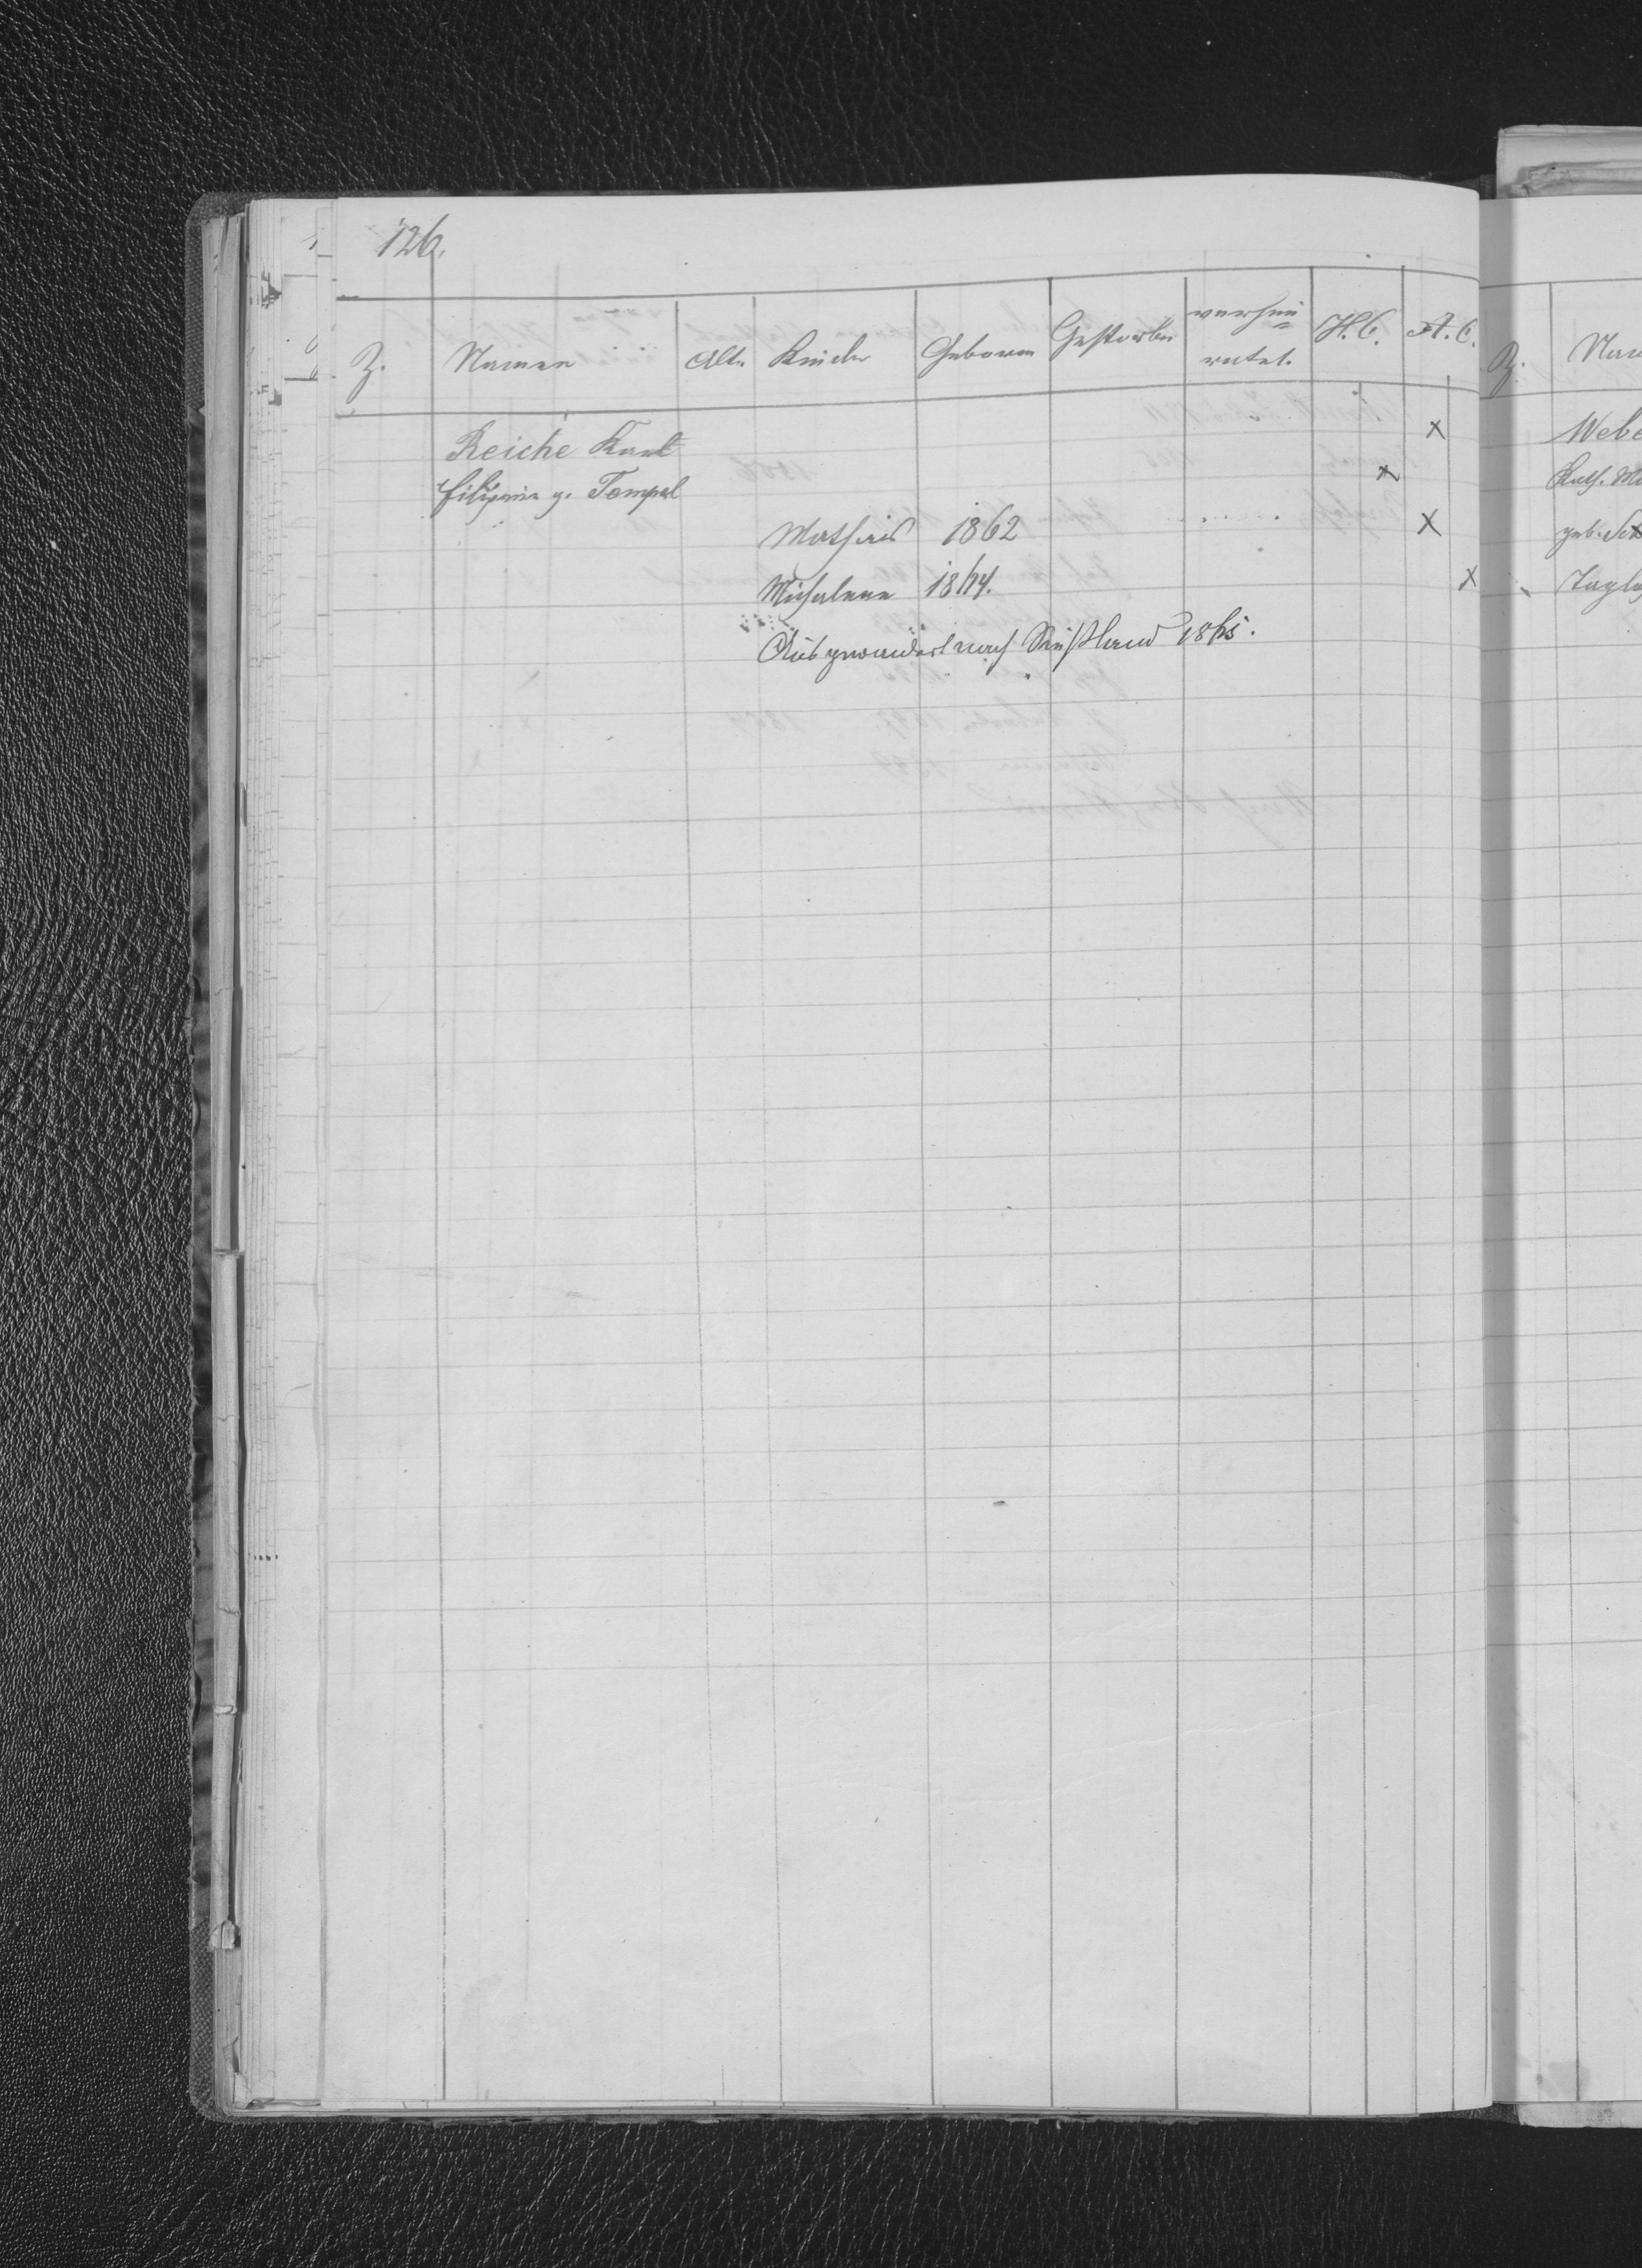 126.
Z. Namen Alt. Kinder Geboren Gestorben verhei=
ratet. H. C. A. C.
Reiche Karl x
Filipina g. Tempel x
Mathias 1862 x
Michalena 1864. x
Ausgewandert nach Rußland 1865.
Z. Nam
Webe
Kath. Ma
geb. Sch